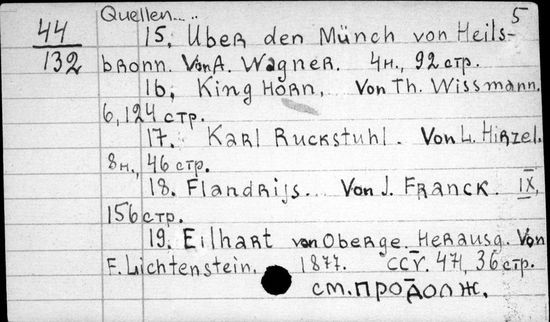 Quellen...
5
44
132
15. Über den Münch von Heils-
bronn. Von A. Wagner. 4н., 92 стр.
16, King Horn, Von Th. Wissmann.
6,124 стр.
17. Karl Ruckstuhl. Von L. Hirzel.
8н., 46 стр.
18. Flandrijs. Von J. Franck. IX,
156 стр.
19. Eilhart von Oberge. Herausg. Von
F. Lichtenstein. 1877. CCV. 471, 36 стр.
см. продолж.